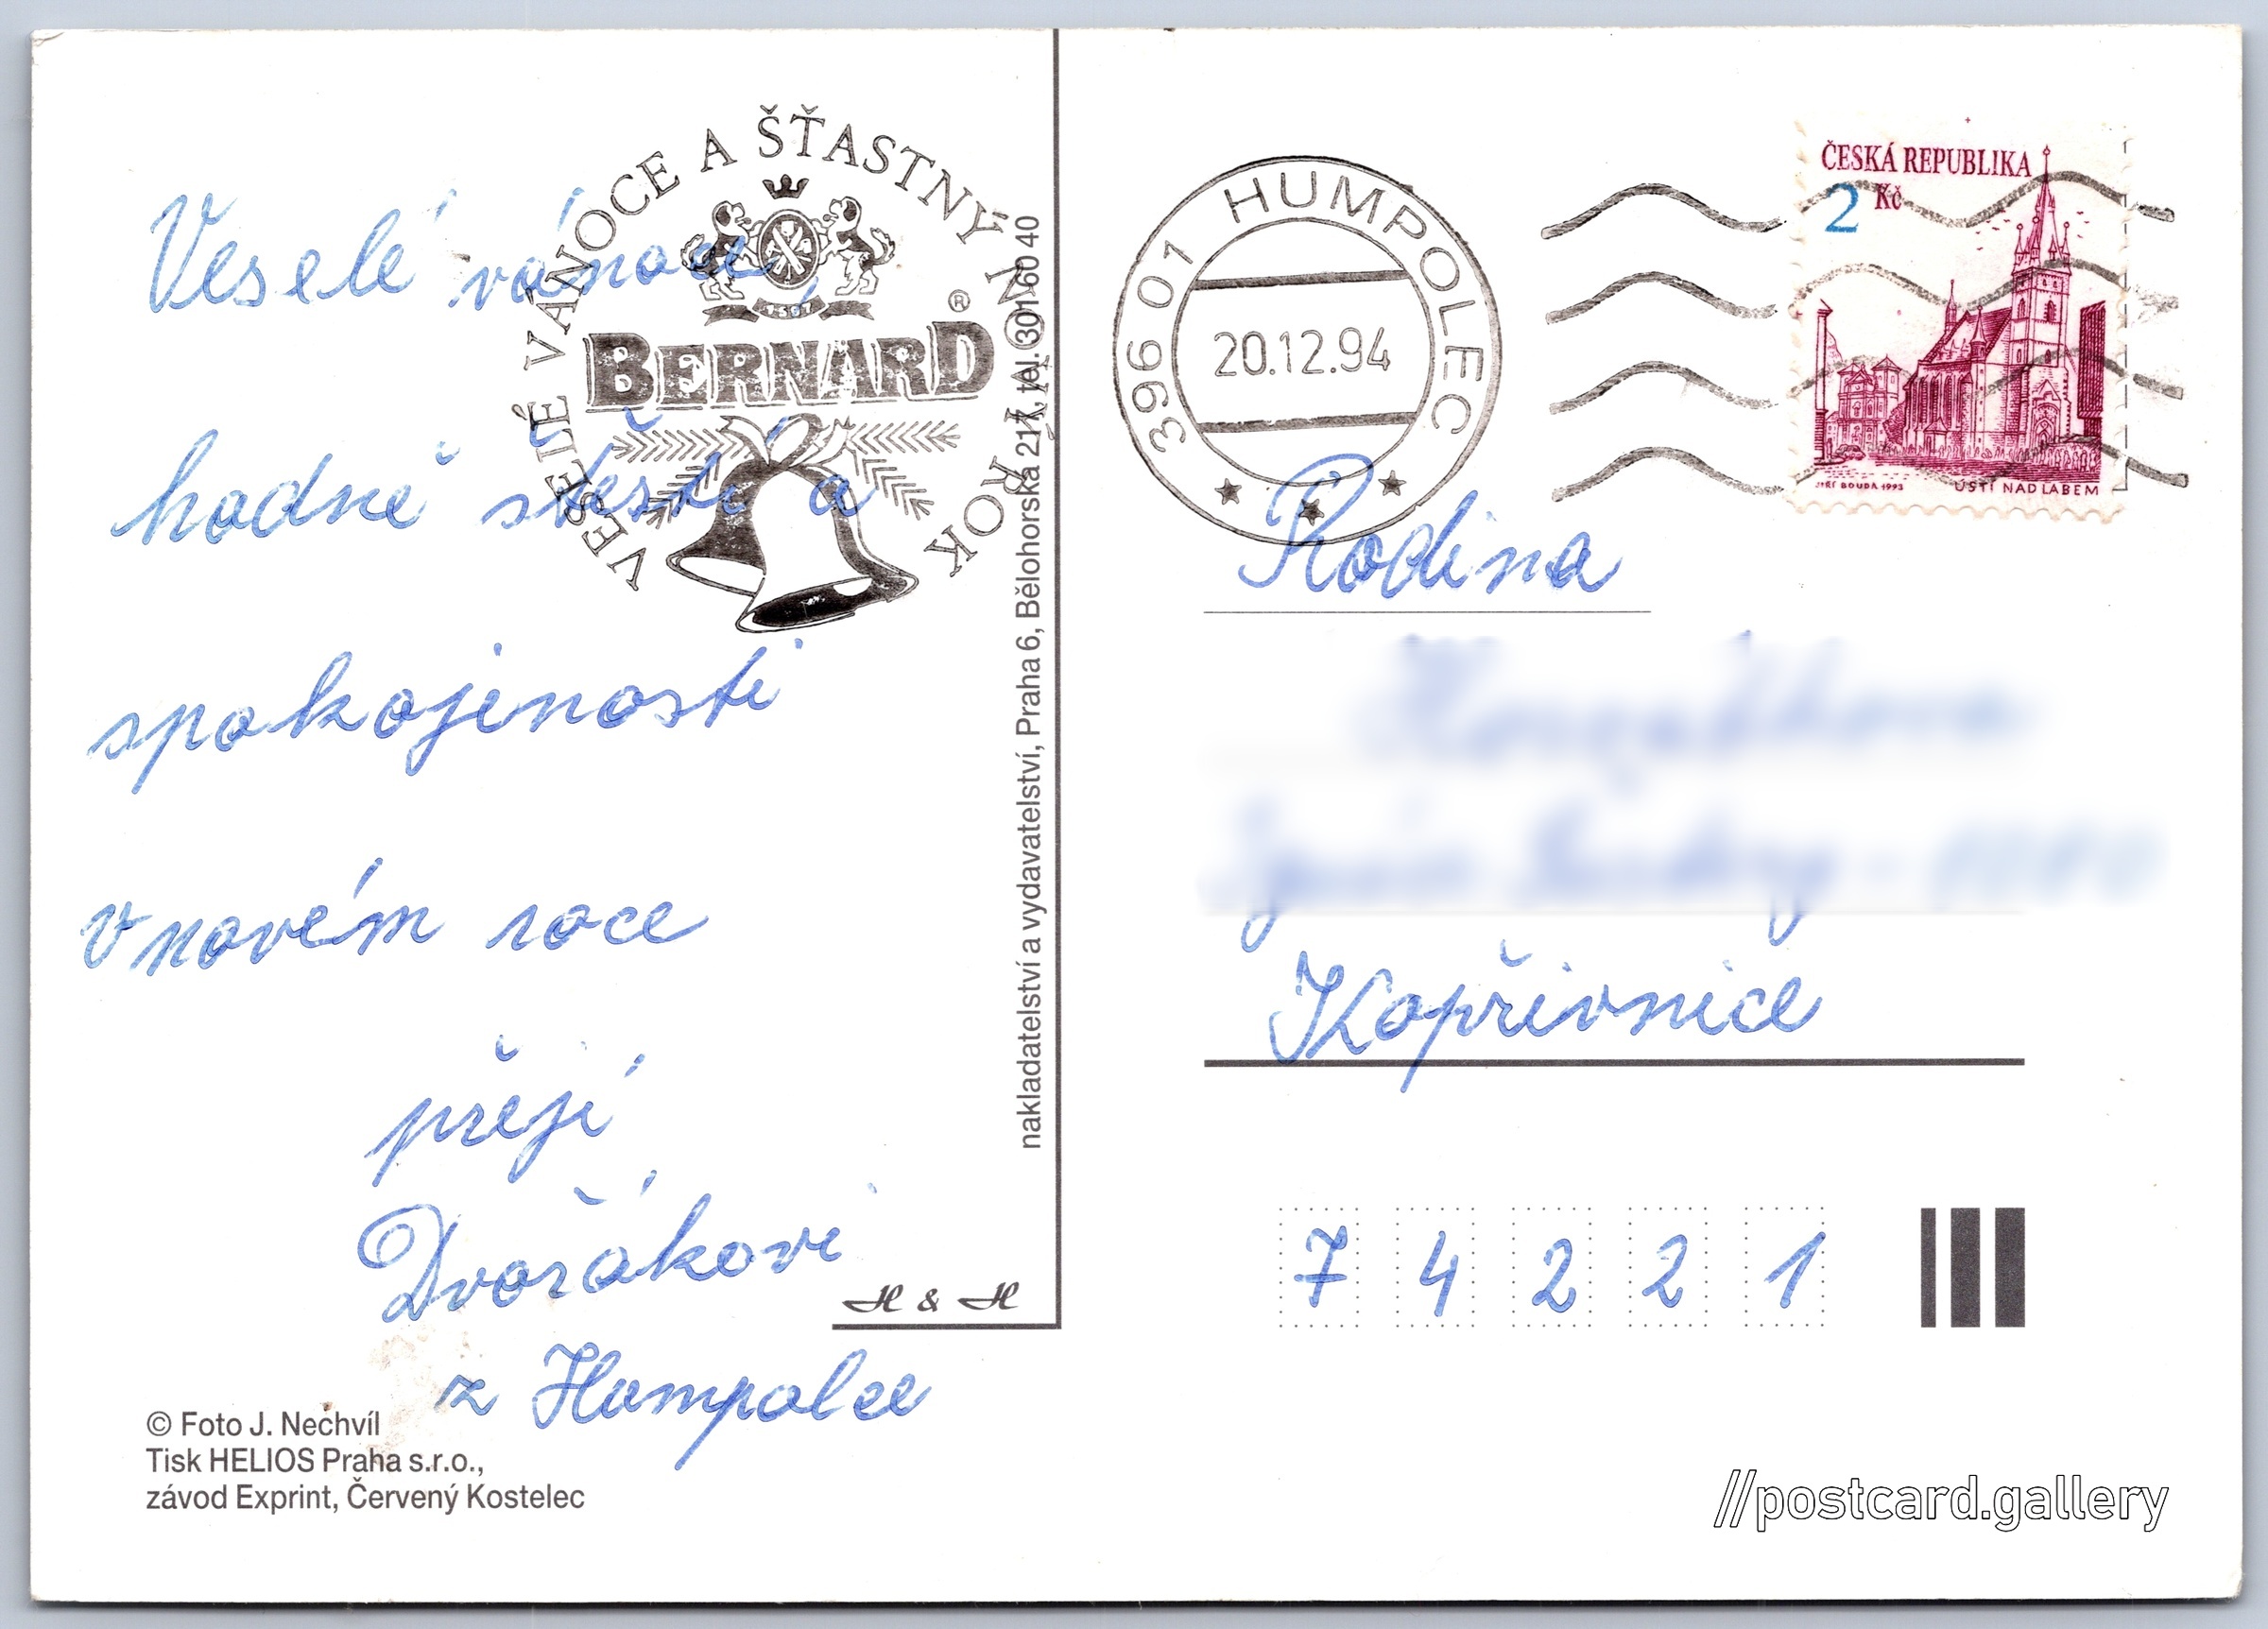 Veselé vánoce,
hodně štěstí a
spokojenosti
v novém roce
přejí
Dvořákovi
z Humpolce
VESELÉ VÁNOCE A ŠŤASTNÝ NOVÝ ROK
1597
BERNARD®
nakladatelství a vydavatelství, Praha 6, Bělohorská 217, tel. 301 60 40
H & H
© Foto J. Nechvíl
Tisk HELIOS Praha s.r.o.,
závod Exprint, Červený Kostelec
396 01 HUMPOLEC
20.12.94
ČESKÁ REPUBLIKA
2 Kč
JIŘÍ BOUDA 1993 ÚSTÍ NAD LABEM
Rodina
Kopřivnice
7 4 2 2 1
//postcard.gallery